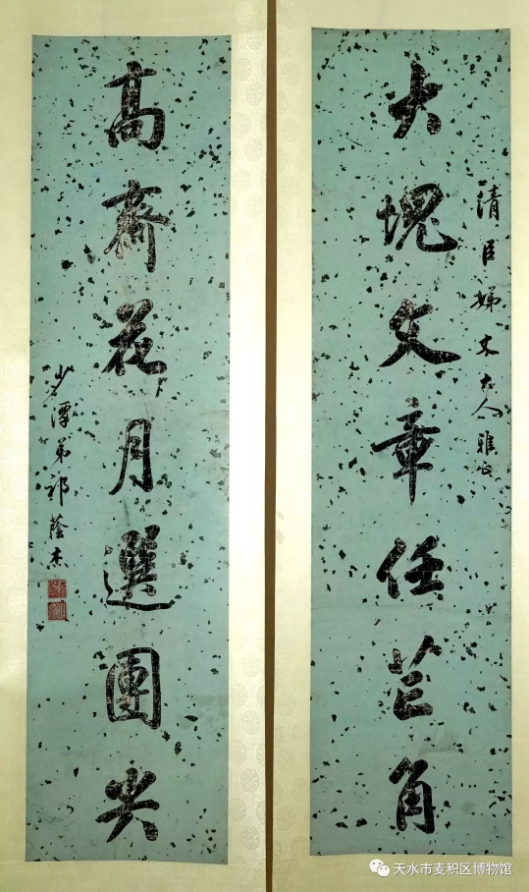 大塊文章任芒角
清臣姊丈大人雅正
高齋花月選團尖
少潭弟祁蔭杰
天水市麦积区博物馆